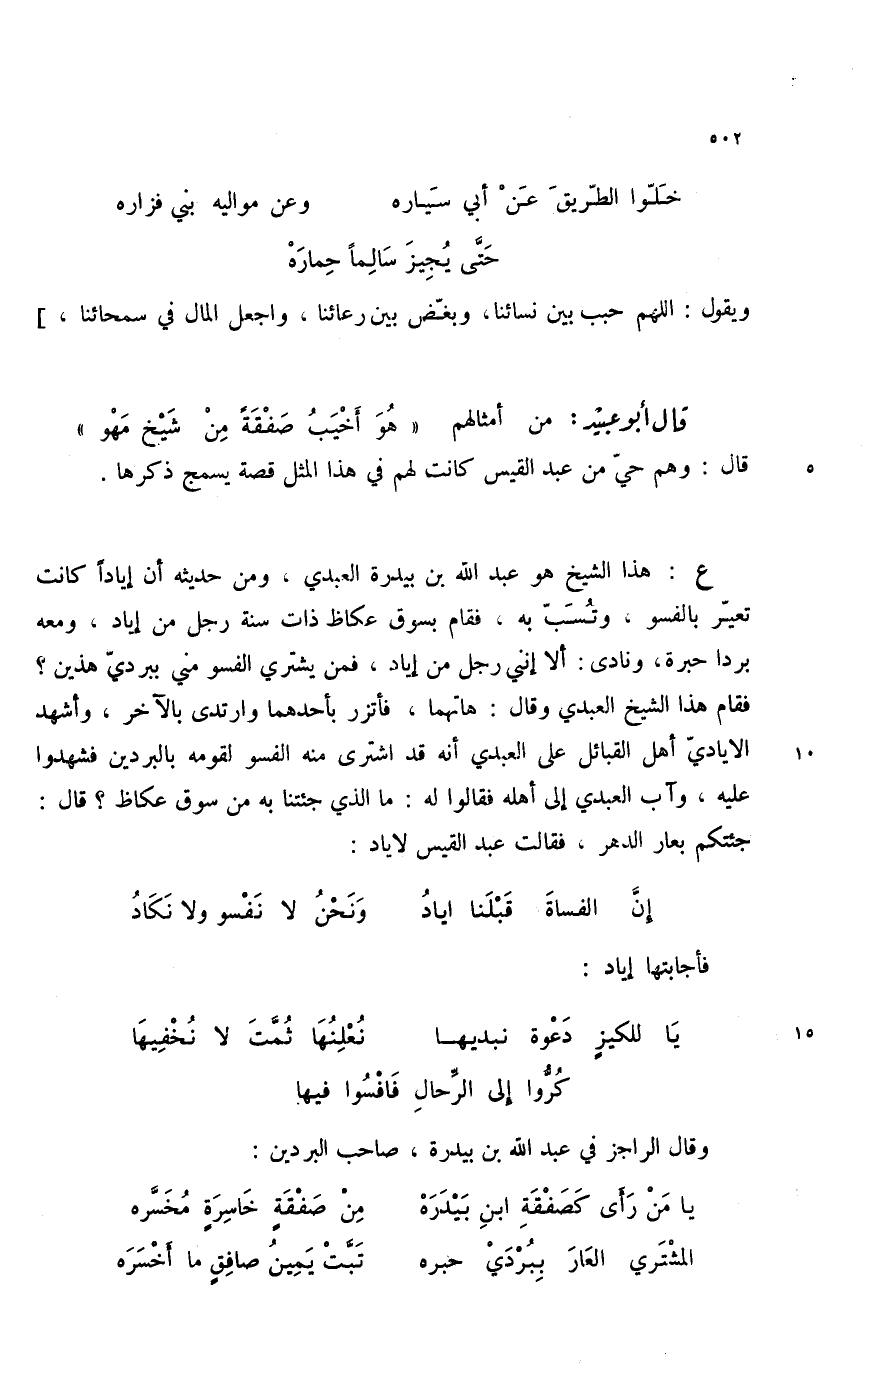 ٥٠٢
خَلّوا الطّريقَ عَنْ أبي سَيّاره وعن مواليه بني فزاره
حَتَّى يُجِيزَ سَالِماً حِمارَهْ
ويقول : اللهم حبب بين نسائنا ، وبغّض بين رعائنا ، واجعل المال في سمحائنا ، ]
قال أبو عبيد : من أمثالهم « هُوَ أَخْيَبُ صَفْقَةً مِنْ شَيْخِ مَهْو »
٥ قال : وهم حيّ من عبد القيس كانت لهم في هذا المثل قصة يسمج ذكرها .
ع : هذا الشيخ هو عبد الله بن بيدرة العبدي ، ومن حديثه أن إياداً كانت
تعيّر بالفسو ، وتُسَبّ به ، فقام بسوق عكاظ ذات سنة رجل من إياد ، ومعه
بردا حبرة ، ونادى : ألا إنني رجل من إياد ، فمن يشتري الفسو مني ببرديّ هذين ؟
فقام هذا الشيخ العبدي وقال : هاتهما ، فأتزر بأحدهما وارتدى بالآخر ، وأشهد
١٠ الاياديّ أهل القبائل على العبدي أنه قد اشترى منه الفسو لقومه بالبردين فشهدوا
عليه ، وآب العبدي إلى أهله فقالوا له : ما الذي جئتنا به من سوق عكاظ ؟ قال :
جئتكم بعار الدهر ، فقالت عبد القيس لاياد :
إِنَّ الفساةَ قَبْلَنا ايادُ وَنَحْنُ لا نَفْسو ولا نَكَادُ
فأجابتها إياد :
١٥ يَا للكيزٍ دَعْوة نبديهــا نُعْلِنُهَا ثُمَّتَ لا نُخْفِيهَا
كُرُّوا إلى الرِّحالِ فَافْسُوا فيها
وقال الراجز في عبد الله بن بيدرة ، صاحب البردين :
يا مَنْ رَأَى كَصَفْقَةِ ابنِ بَيْدَرَهْ مِنْ صَفْقَةٍ خَاسِرَةٍ مُخَسَّره
المشْتَري العَارَ بِبُرْدَيْ حبره تَبَّتْ يَمِينُ صافِقٍ ما أَخْسَرَه